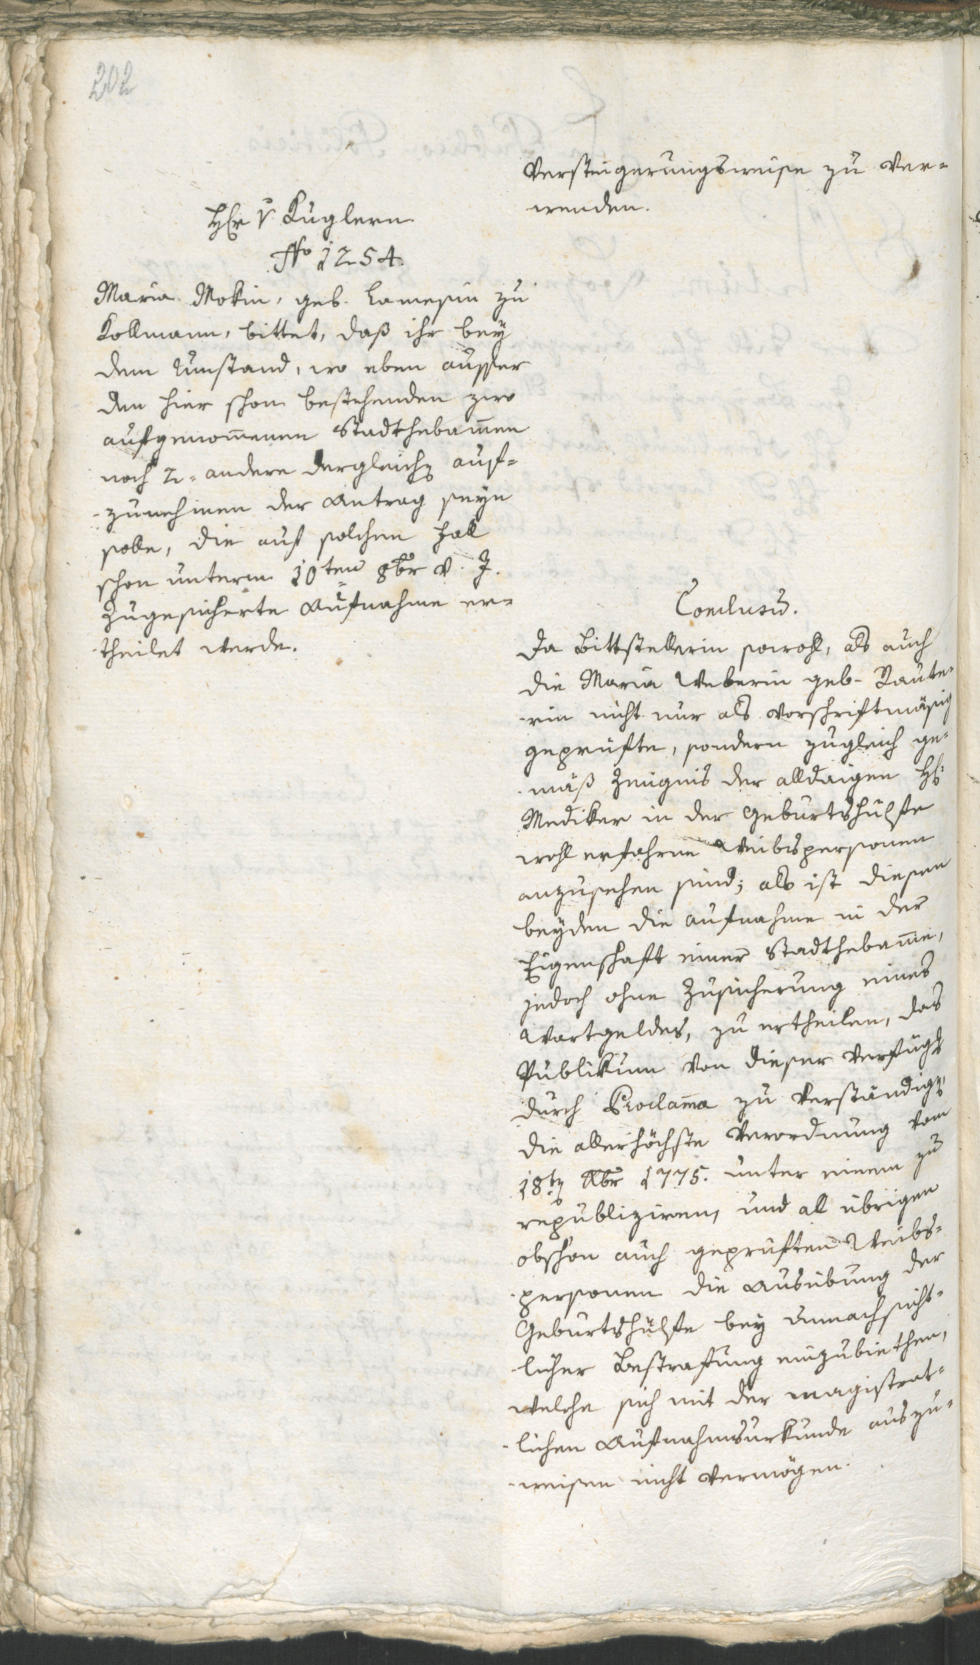 202
Versteigerungsweise zu ver-
wenden.
Hr v Kuglern
No 1254.
Maria Mokin, geb. Lamesin zu
Kollmann, bittet, daß ihr bey
dem Umstand, wo eben ausser
den hier schon bestehenden zwo
aufgenom̄enen Stadthebam̄en
noch 2. andere dergleich auf-
zunehmen der Antrag seyn
solle, die auf solchen Fall
schon unterm 10ten 8br v. J.
zugesicherte Aufnahme er-
theilet werde.
Conclusū.
Da Bittstellerin sowohl, als auch
die Maria Weberin geb. Raute-
rin nicht nur als vorschriftmäsig
geprüfte, sondern zugleich ge-
mäß Zeugnis der alldaigen H:
Mediker in der Geburtshülfe
wohl erfahrne Weibspersonen
anzusehen sind; als ist diesen
beyden die Aufnahme in der
Eigenschaft einer Stadthebam̄e,
jedoch ohne Zusicherung eines
Wartgeldes, zu ertheilen, das
Publikum von dieser Verfügg
durch Proclam̄a zu verständig,
die allerhöchste Verordnung vom
18t Xbr 1775. unter einem zu
republiziren, und all übrigen
obschon auch geprüften Weibs-
personen die Ausübung der
Geburtshülfe bey unnachsicht-
licher Bestrafung einzubiethen,
welche sich mit der magistrat-
lichen Aufnahmsurkunde auszu-
weisen nicht vermögen.